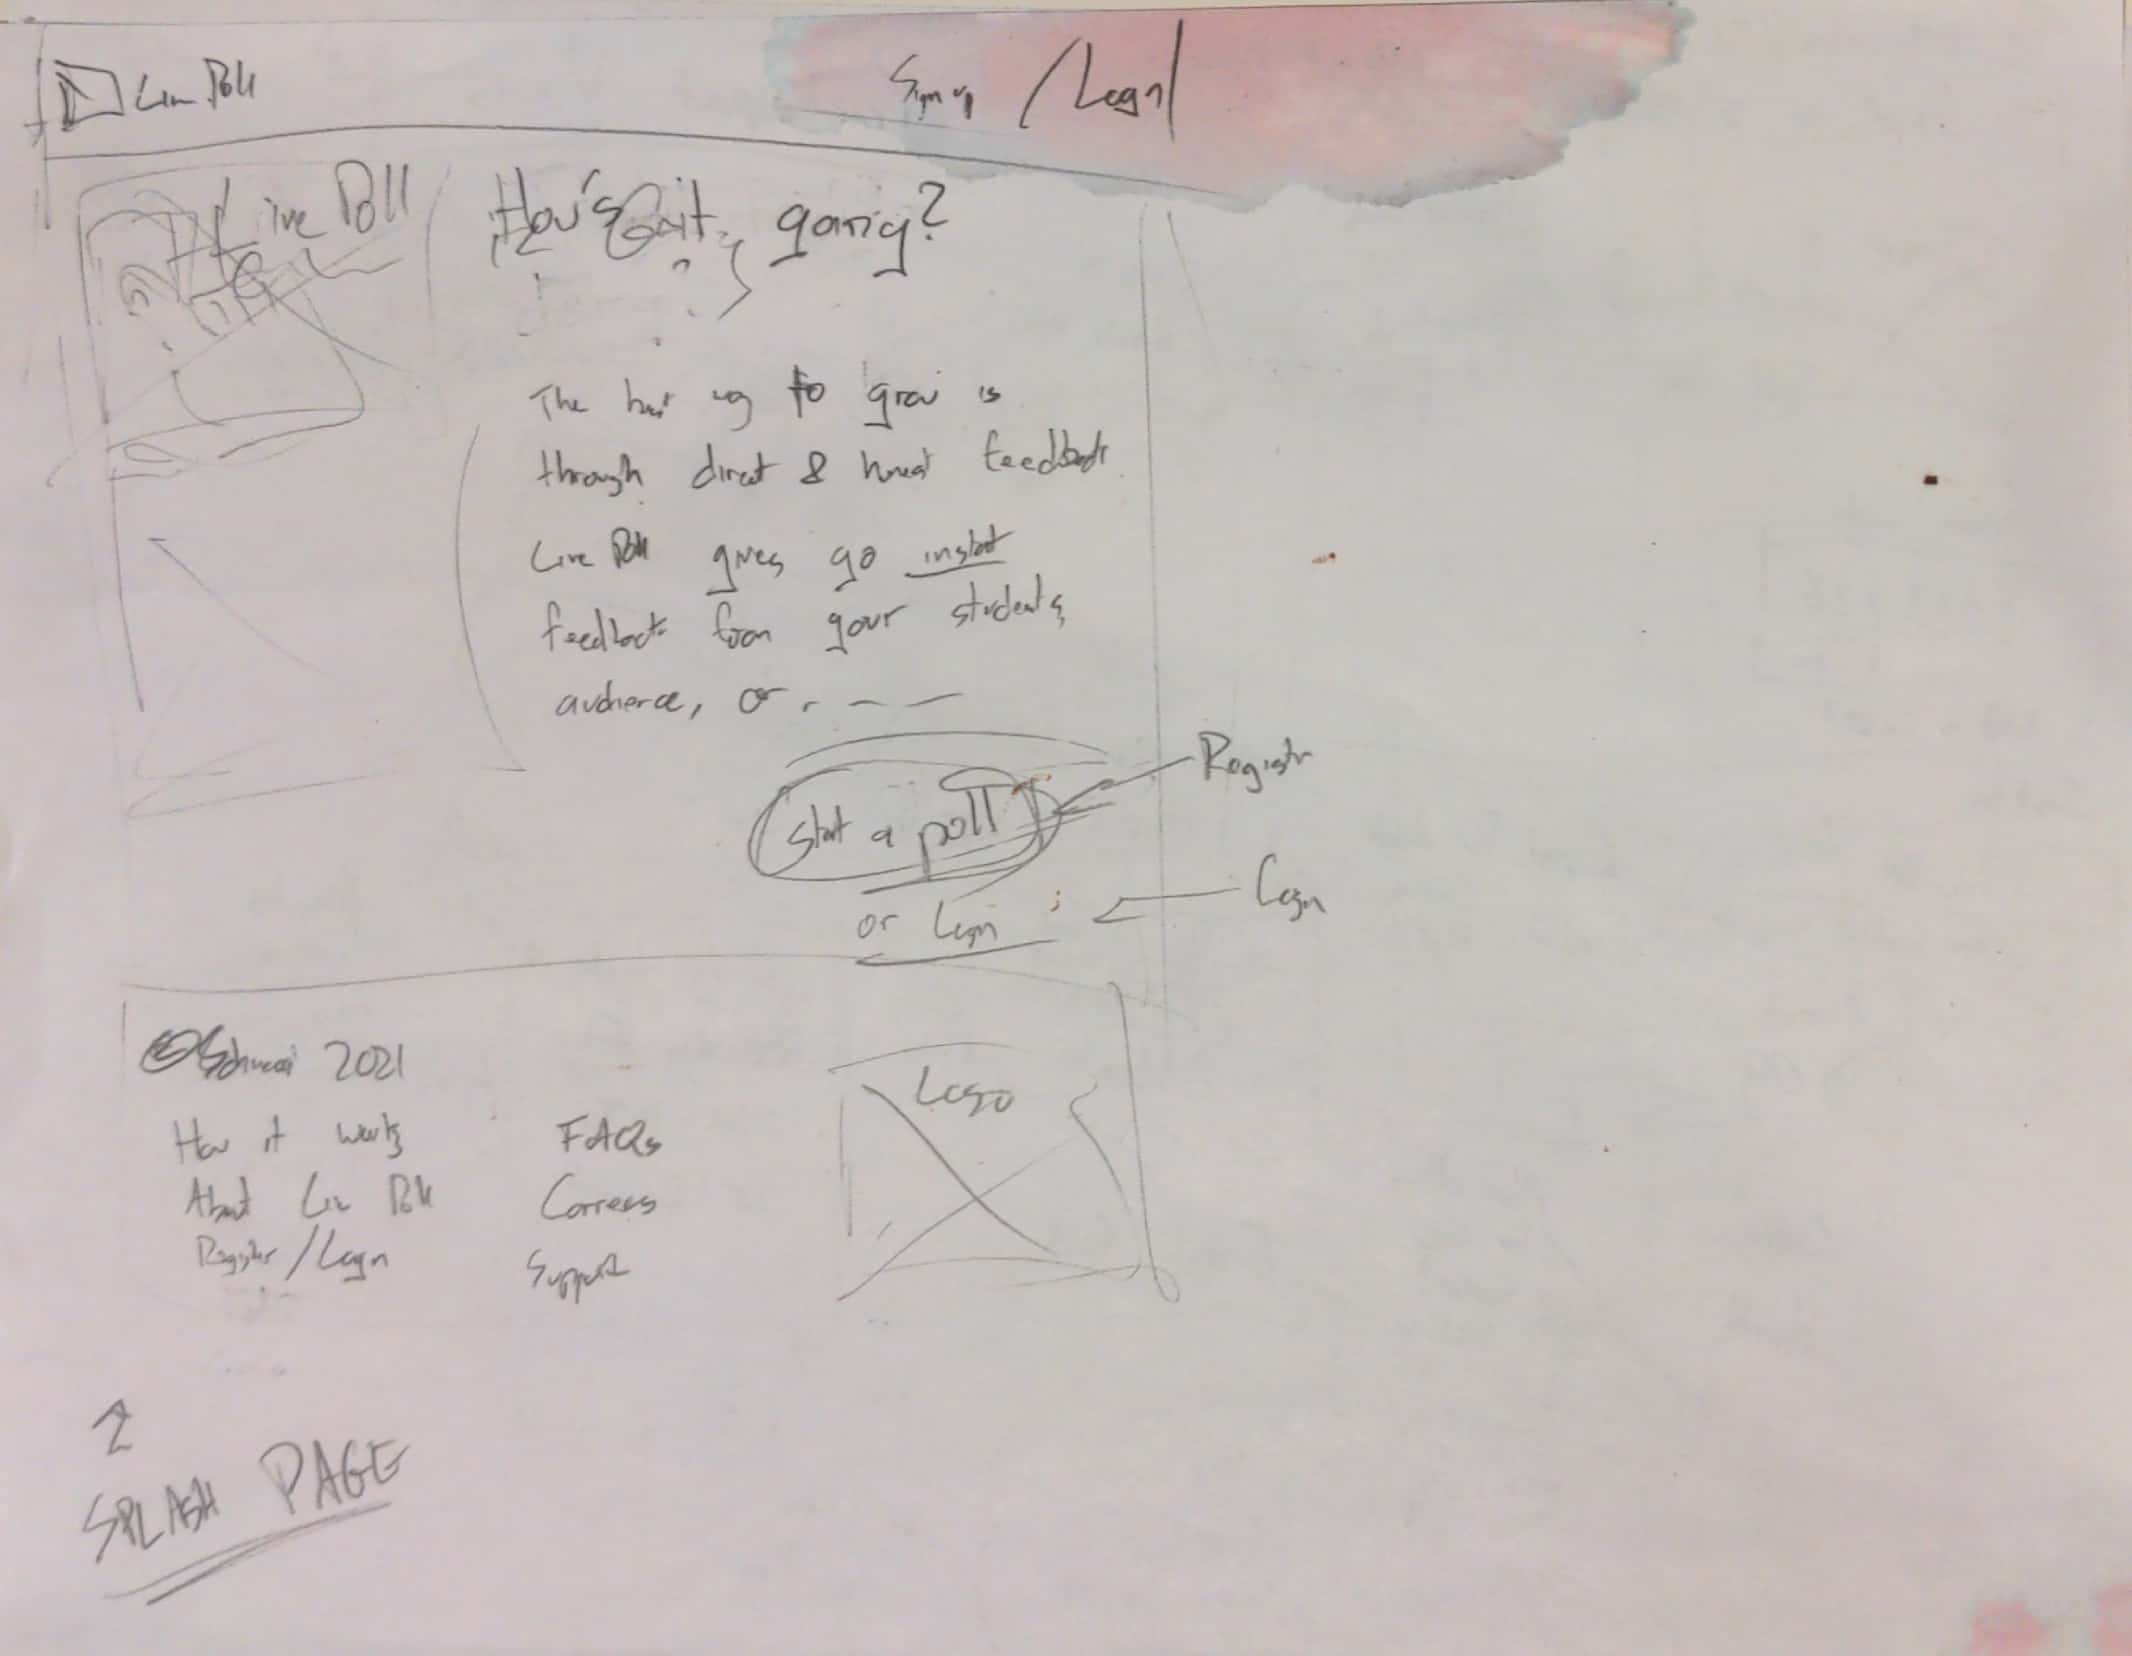 Live Poll
Sign up / Login
Live Poll
How's it going?
The best way to grow is
through direct & honest feedback
Live Poll gives yo instat
feedback from your students,
audience, or
Start a poll
Registr
or Login
Login
2021
How it works
About Live Poll
Register / Login
FAQs
Careers
Support
Logo
2
SPLASH PAGE